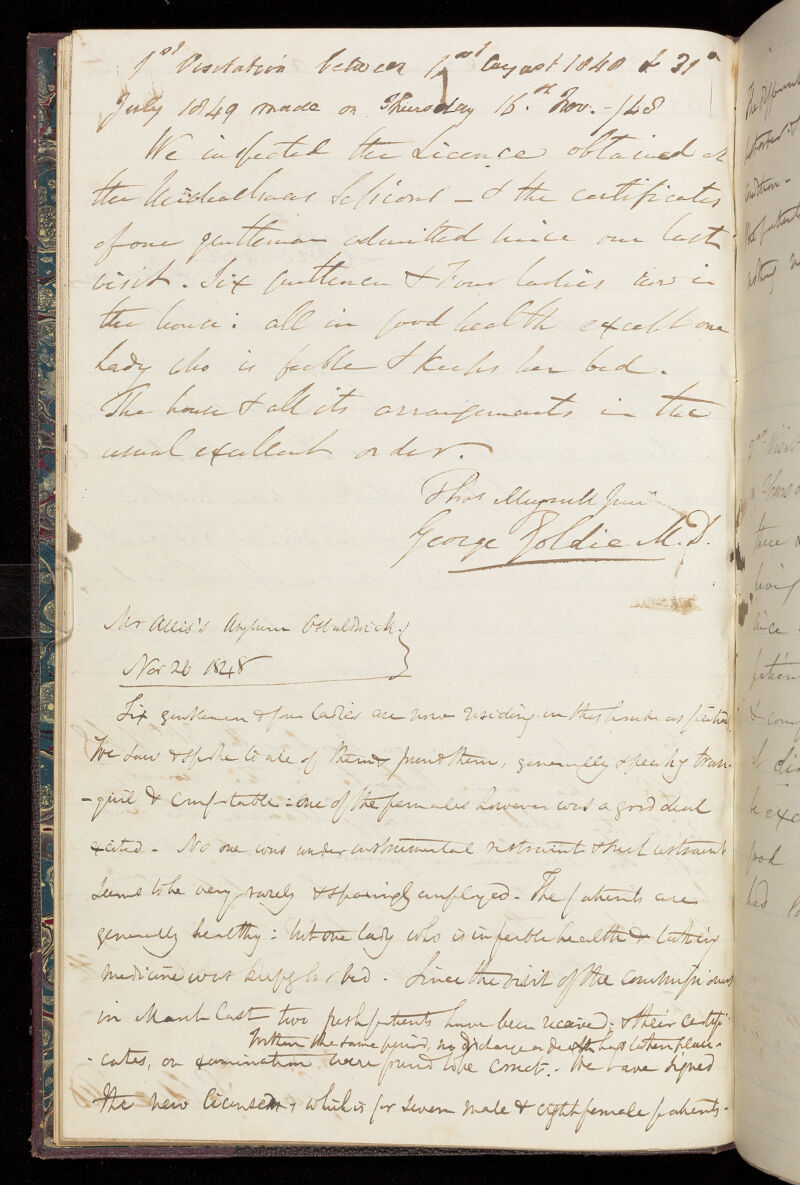 1st Visitation between 1st August 1848 & 31st
July 1849 made on Thursday 16th Nov. -/48
We inspected the Licence obtained at
the Michaelmas Sessions - & the certificates
of one gentleman admitted since our last
visit. Six gentlemen & Four ladies now in
the house: all in good health except one
Lady who is feeble & keeps her bed.
The house & all its arrangements in the
usual excellent order.
Thos Meynell Junr
George Goldie M.D.
Mr Allis's Asylum Osbaldwick
Nov 26 1848
Six gentlemen & four ladies are now residing in this house as patients
We saw & spoke to all of them & found them, generally speaking tran-
-quil & comfortable: one of the females however was a good deal
excited - No one was under instrumental restraint & such restraint
seems to be very rarely & sparingly employed. The patients are
generally healthy: but one lady who is in feeble health & taking
medicine was kept in bed. Since the visit of the commissioners
in March last two fresh patients have been received: & their certifi-
Within the same period, no discharge or death has taken place.
-cates, on examination were found to be correct. We have signed
the new license, which is for seven male & eight female patients.
The different
patients
good
had